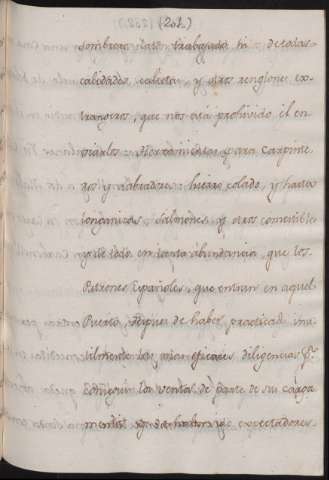 (201.)
sombreros laton trabajado ta de todas
calidades, caleta, y otros renglones ex-
trangeros, que nos está prohivido el en-
viarles: Herramientas para Carpinte
ros y labradores: hierro colado, y hasta
longanizas, salmones, y otros comestibles
y de todo en tanta abundancia, que los
Patrones Españoles, que entran en aquel
Puerto, despues de haber practicado inu
tilmente las mas eficaces diligencias p.ª
conseguir las ventas de parte de su carga
mento, se han de expectadores.